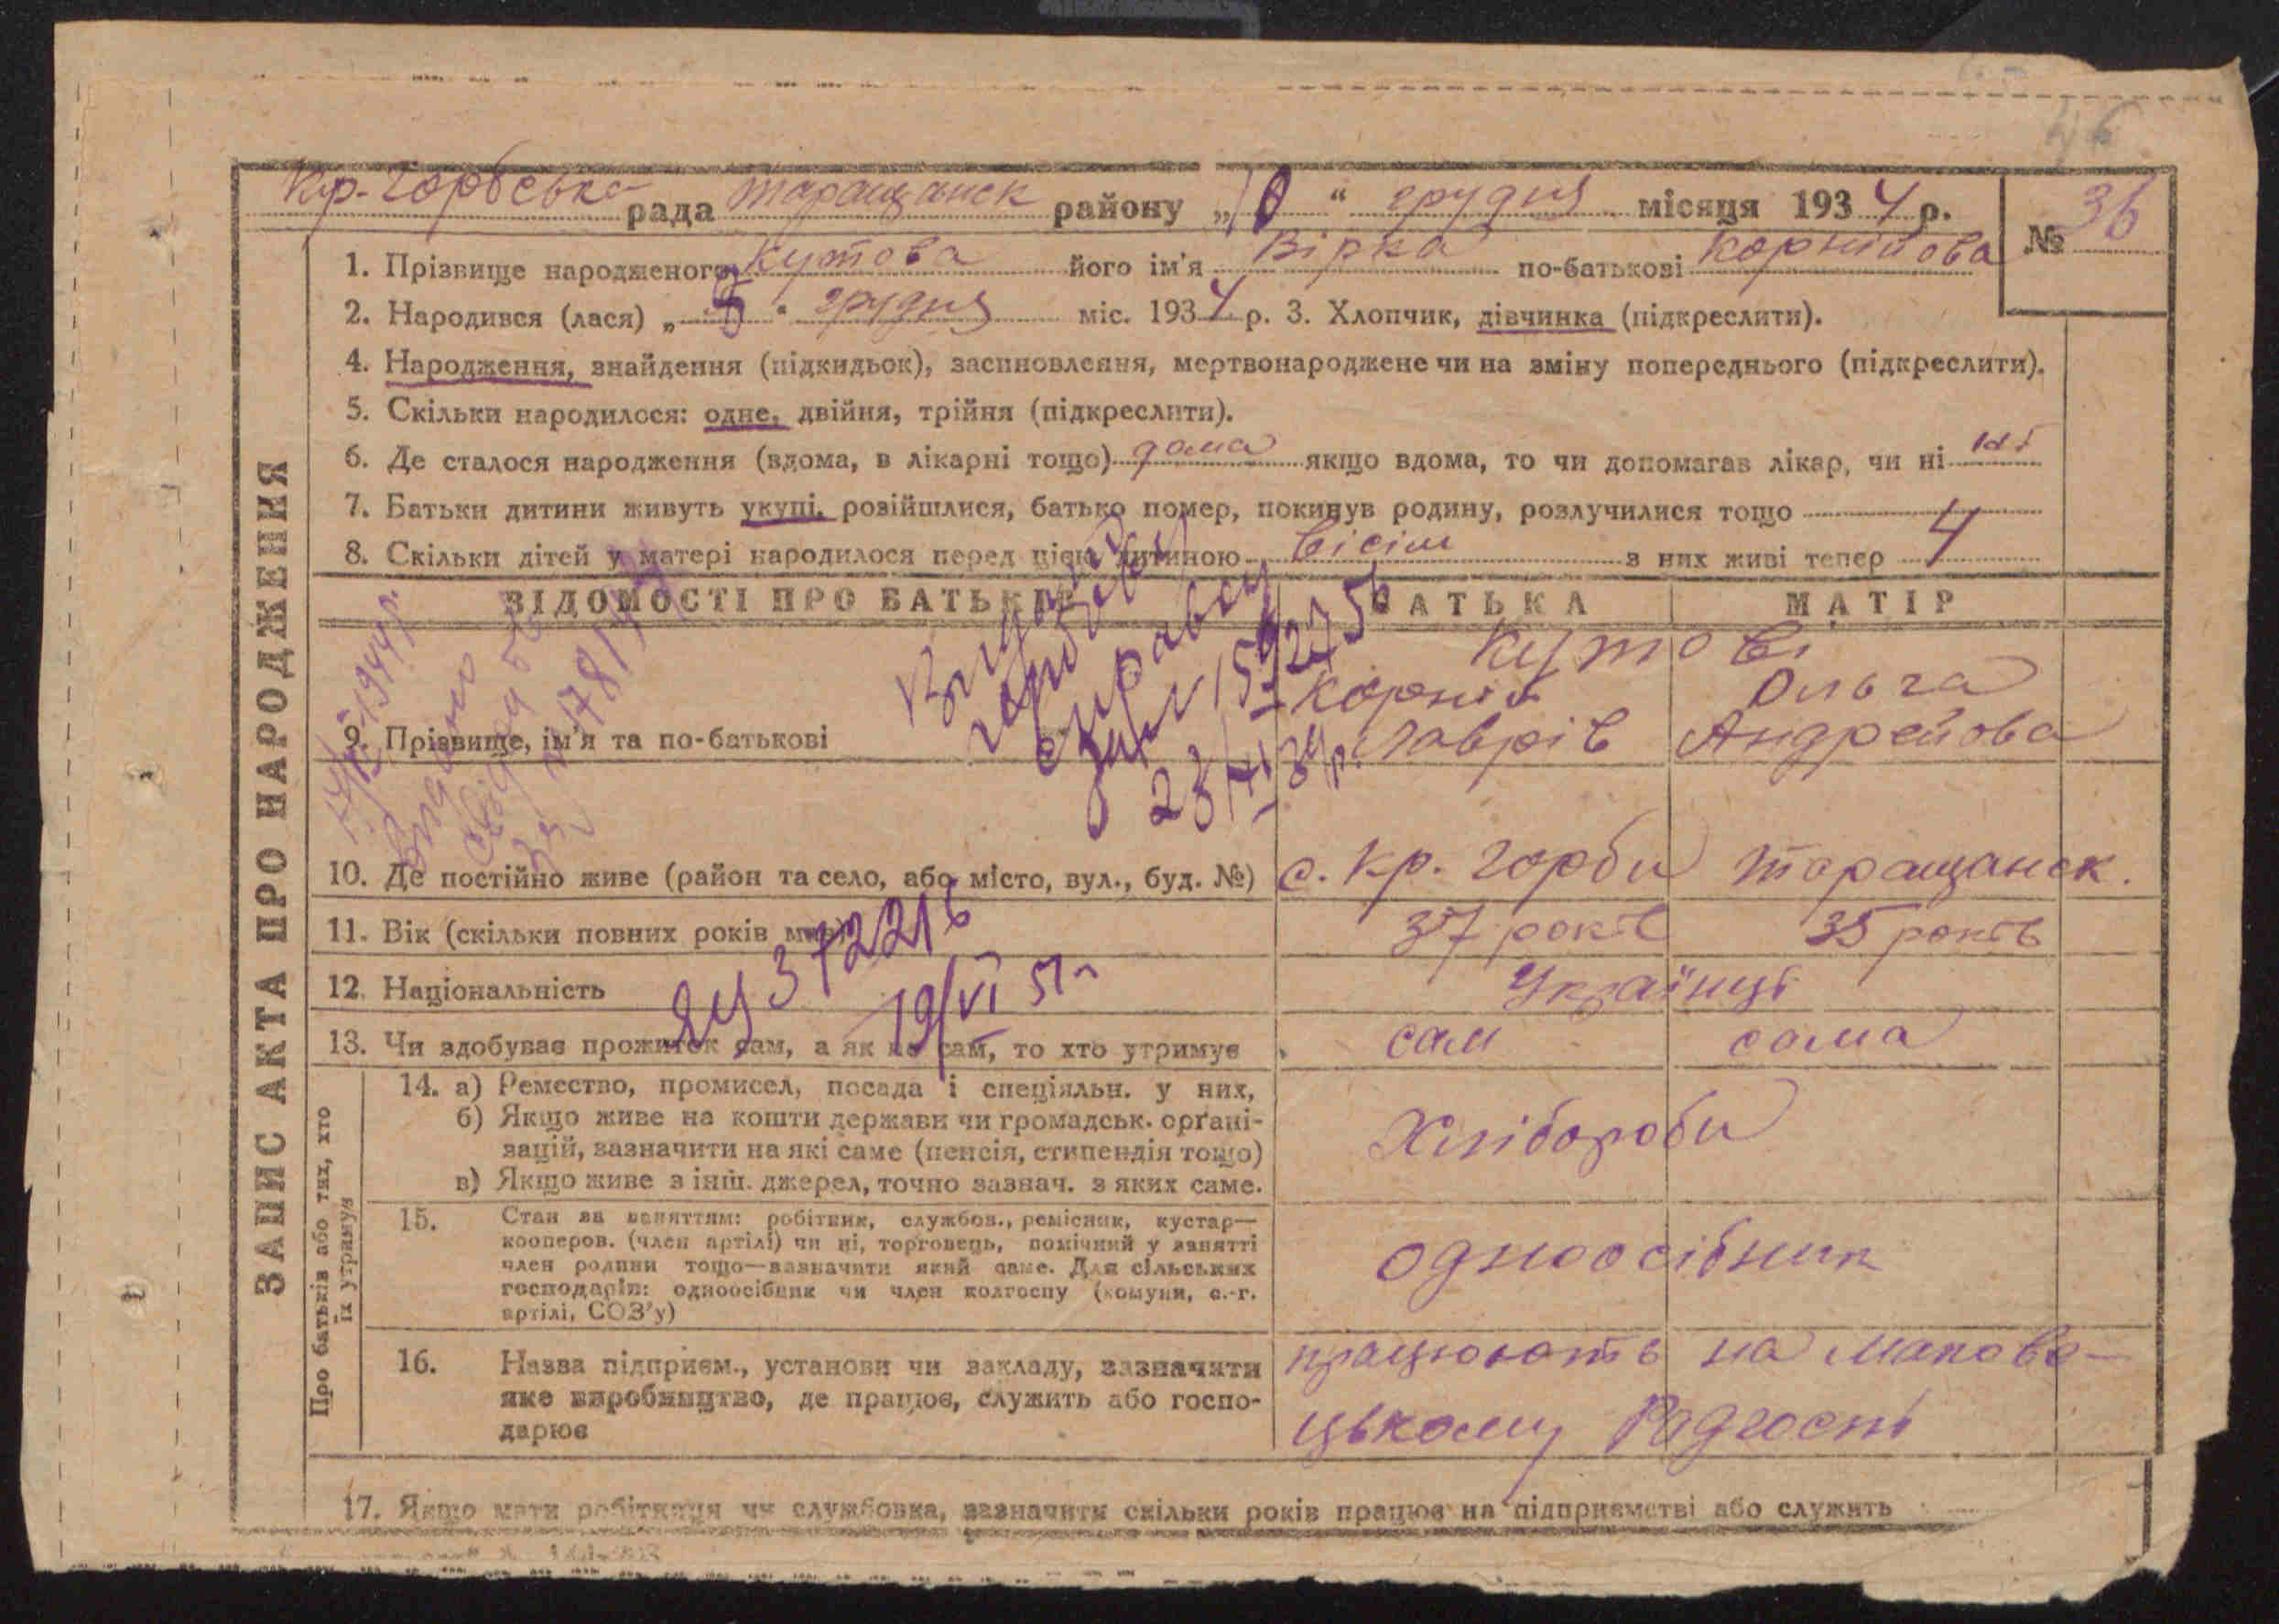 46
Кр-Горбська рада Таращанск району „10 “ грудня місяця 1934 р.
№ 36
1. Прізвище народженого Кутова його ім'я Вірка по-батькові Корнійова
2. Народився (лася) „ 5 “ грудня міс. 1934 р. 3. Хлопчик, дівчинка (підкреслити).
4. Народження, знайдення (підкидьок), засиновлення, мертвонароджене чи на зміну попереднього (підкреслити).
5. Скільки народилося: одне, двійня, трійня (підкреслити).
6. Де сталося народження (вдома, в лікарні тощо) дома якщо вдома, то чи допомагав лікар, чи ні ні
7. Батьки дитини живуть укупі, розійшлися, батько помер, покинув родину, розлучилися тощо
8. Скільки дітей у матері народилося перед цією дитиною вісім з них живі тепер 4
ЗАПИС АКТА ПРО НАРОДЖЕННЯ
ВІДОМОСТІ ПРО БАТЬКІВ
БАТЬКА
МАТІР
Кутові
Корній Ольга
9. Прізвище, ім'я та по-батькові Лаврів Андрейова
1944 р.
Видано
10. Де постійно живе (район та село, або місто, вул., буд. №) с. Кр. Горби Таращанск.
11. Вік (скільки повних років мав) 37 років 35 років
12. Національність Українці
ЯЦ 372216
19/VI 51 г
13. Чи здобуває прожиток сам, а як не сам, то хто утримує сам сама
Про батьків або тих, хто
їх утримує
14. а) Ремество, промисел, посада і спеціяльн. у них,
б) Якщо живе на кошти держави чи громадськ. орґані-
зацій, зазначити на які саме (пенсія, стипендія тощо)
в) Якщо живе з інш. джерел, точно зазнач. з яких саме.
Хлібороби
15. Стан за заняттям: робітник, службов., ремісник, кустар—
кооперов. (член артілі) чи ні, торговець, помічний у занятті
член родини тощо—зазначити який саме. Для сільських
господарів: одноосібник чи член колгоспу (комуни, с.-г.
артілі, СОЗ'у)
одноосібник
16. Назва підприєм., установи чи закладу, зазначити
яке виробництво, де працює, служить або госпо-
дарює
працюють на Манове-
цькому Радгоспі
17. Якщо мати робітниця чи службовка, зазначити скільки років працює на підприємстві або служить